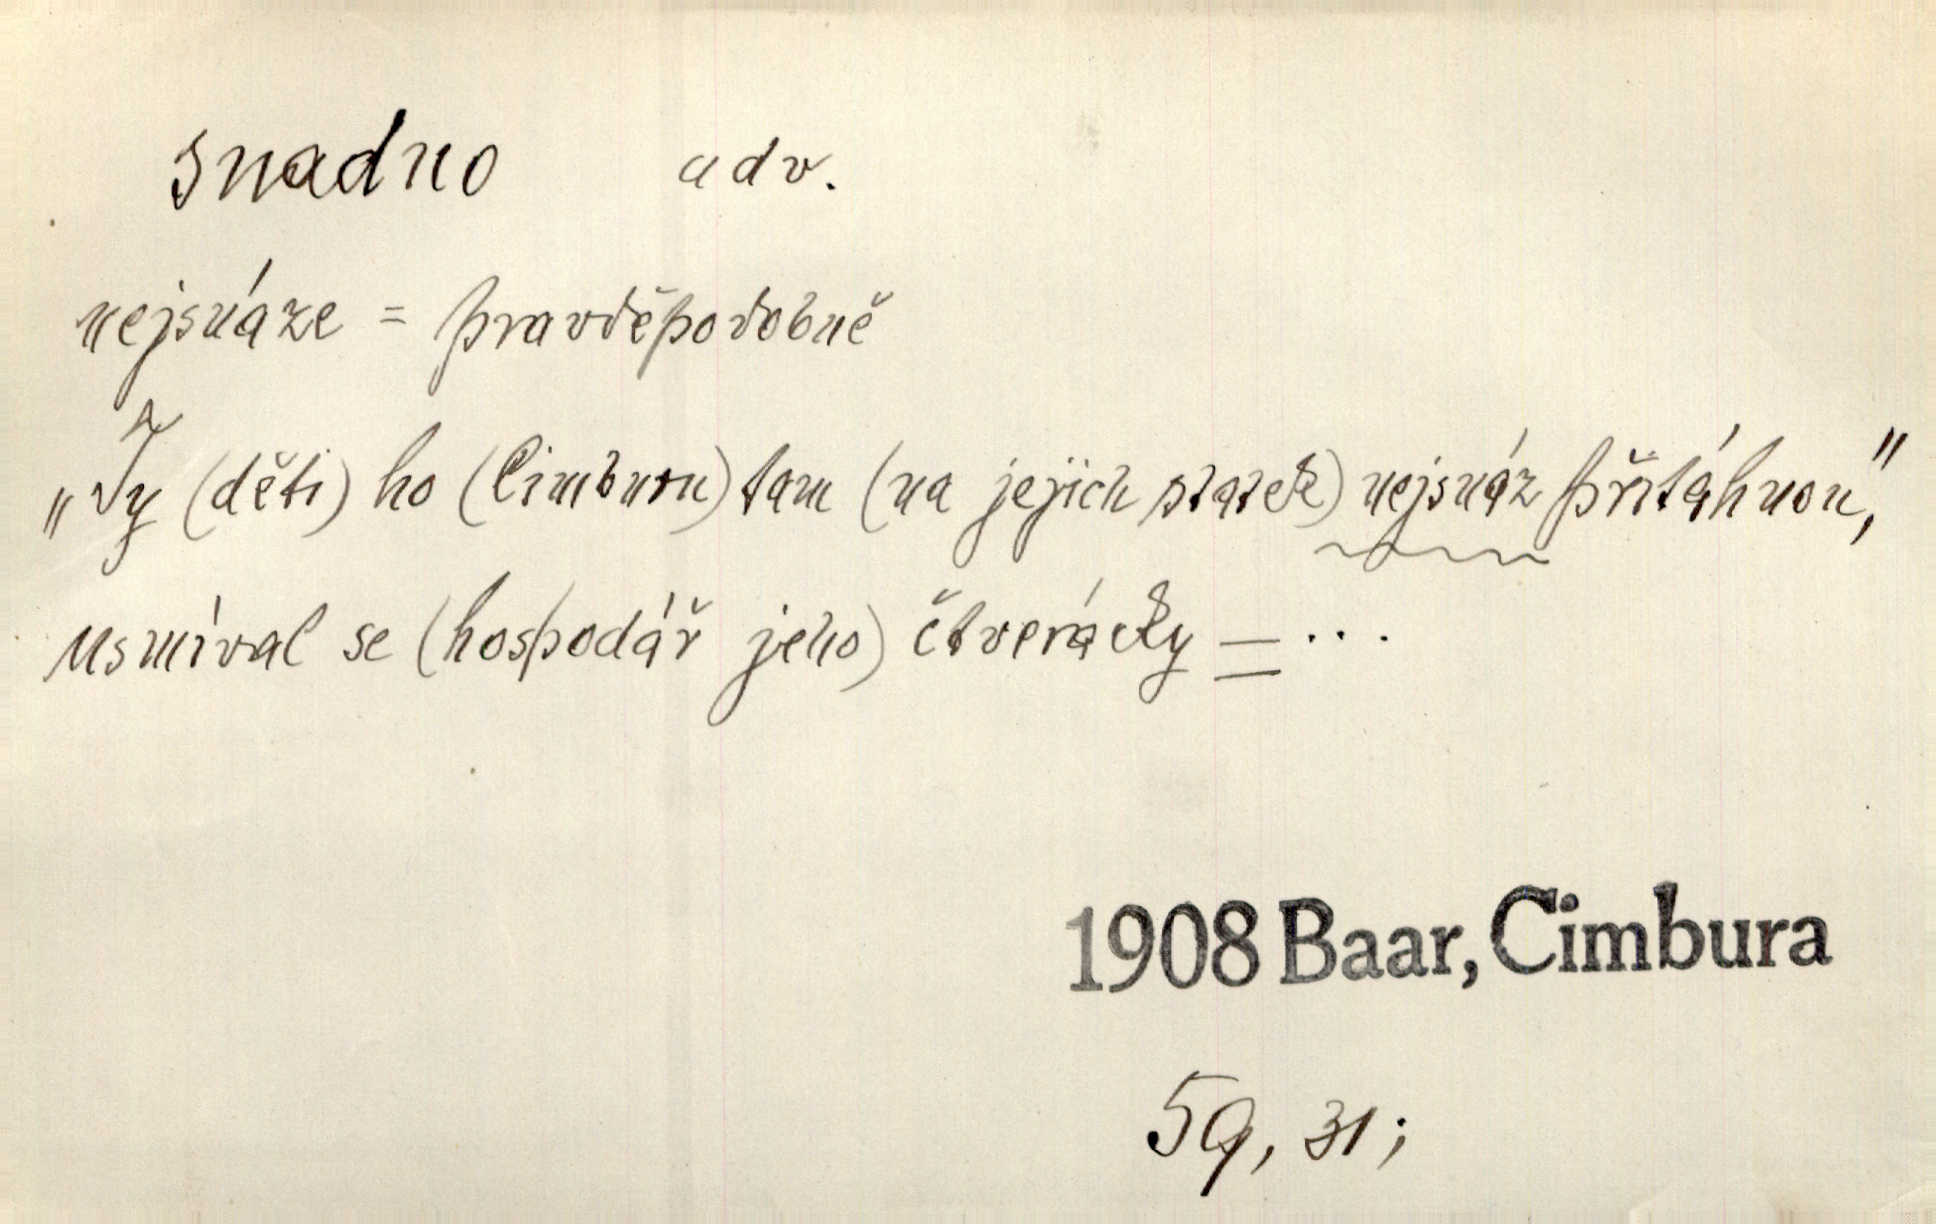 snadno adv.
nejsnáze = pravděpodobně
„Ty (děti) ho (Cimburu) tam (na jejich statek) nejsnáz přitáhnou,"
usmíval se (hospodář jeho) čtverácky = ...
1908 Baar, Cimbura
59, 31;